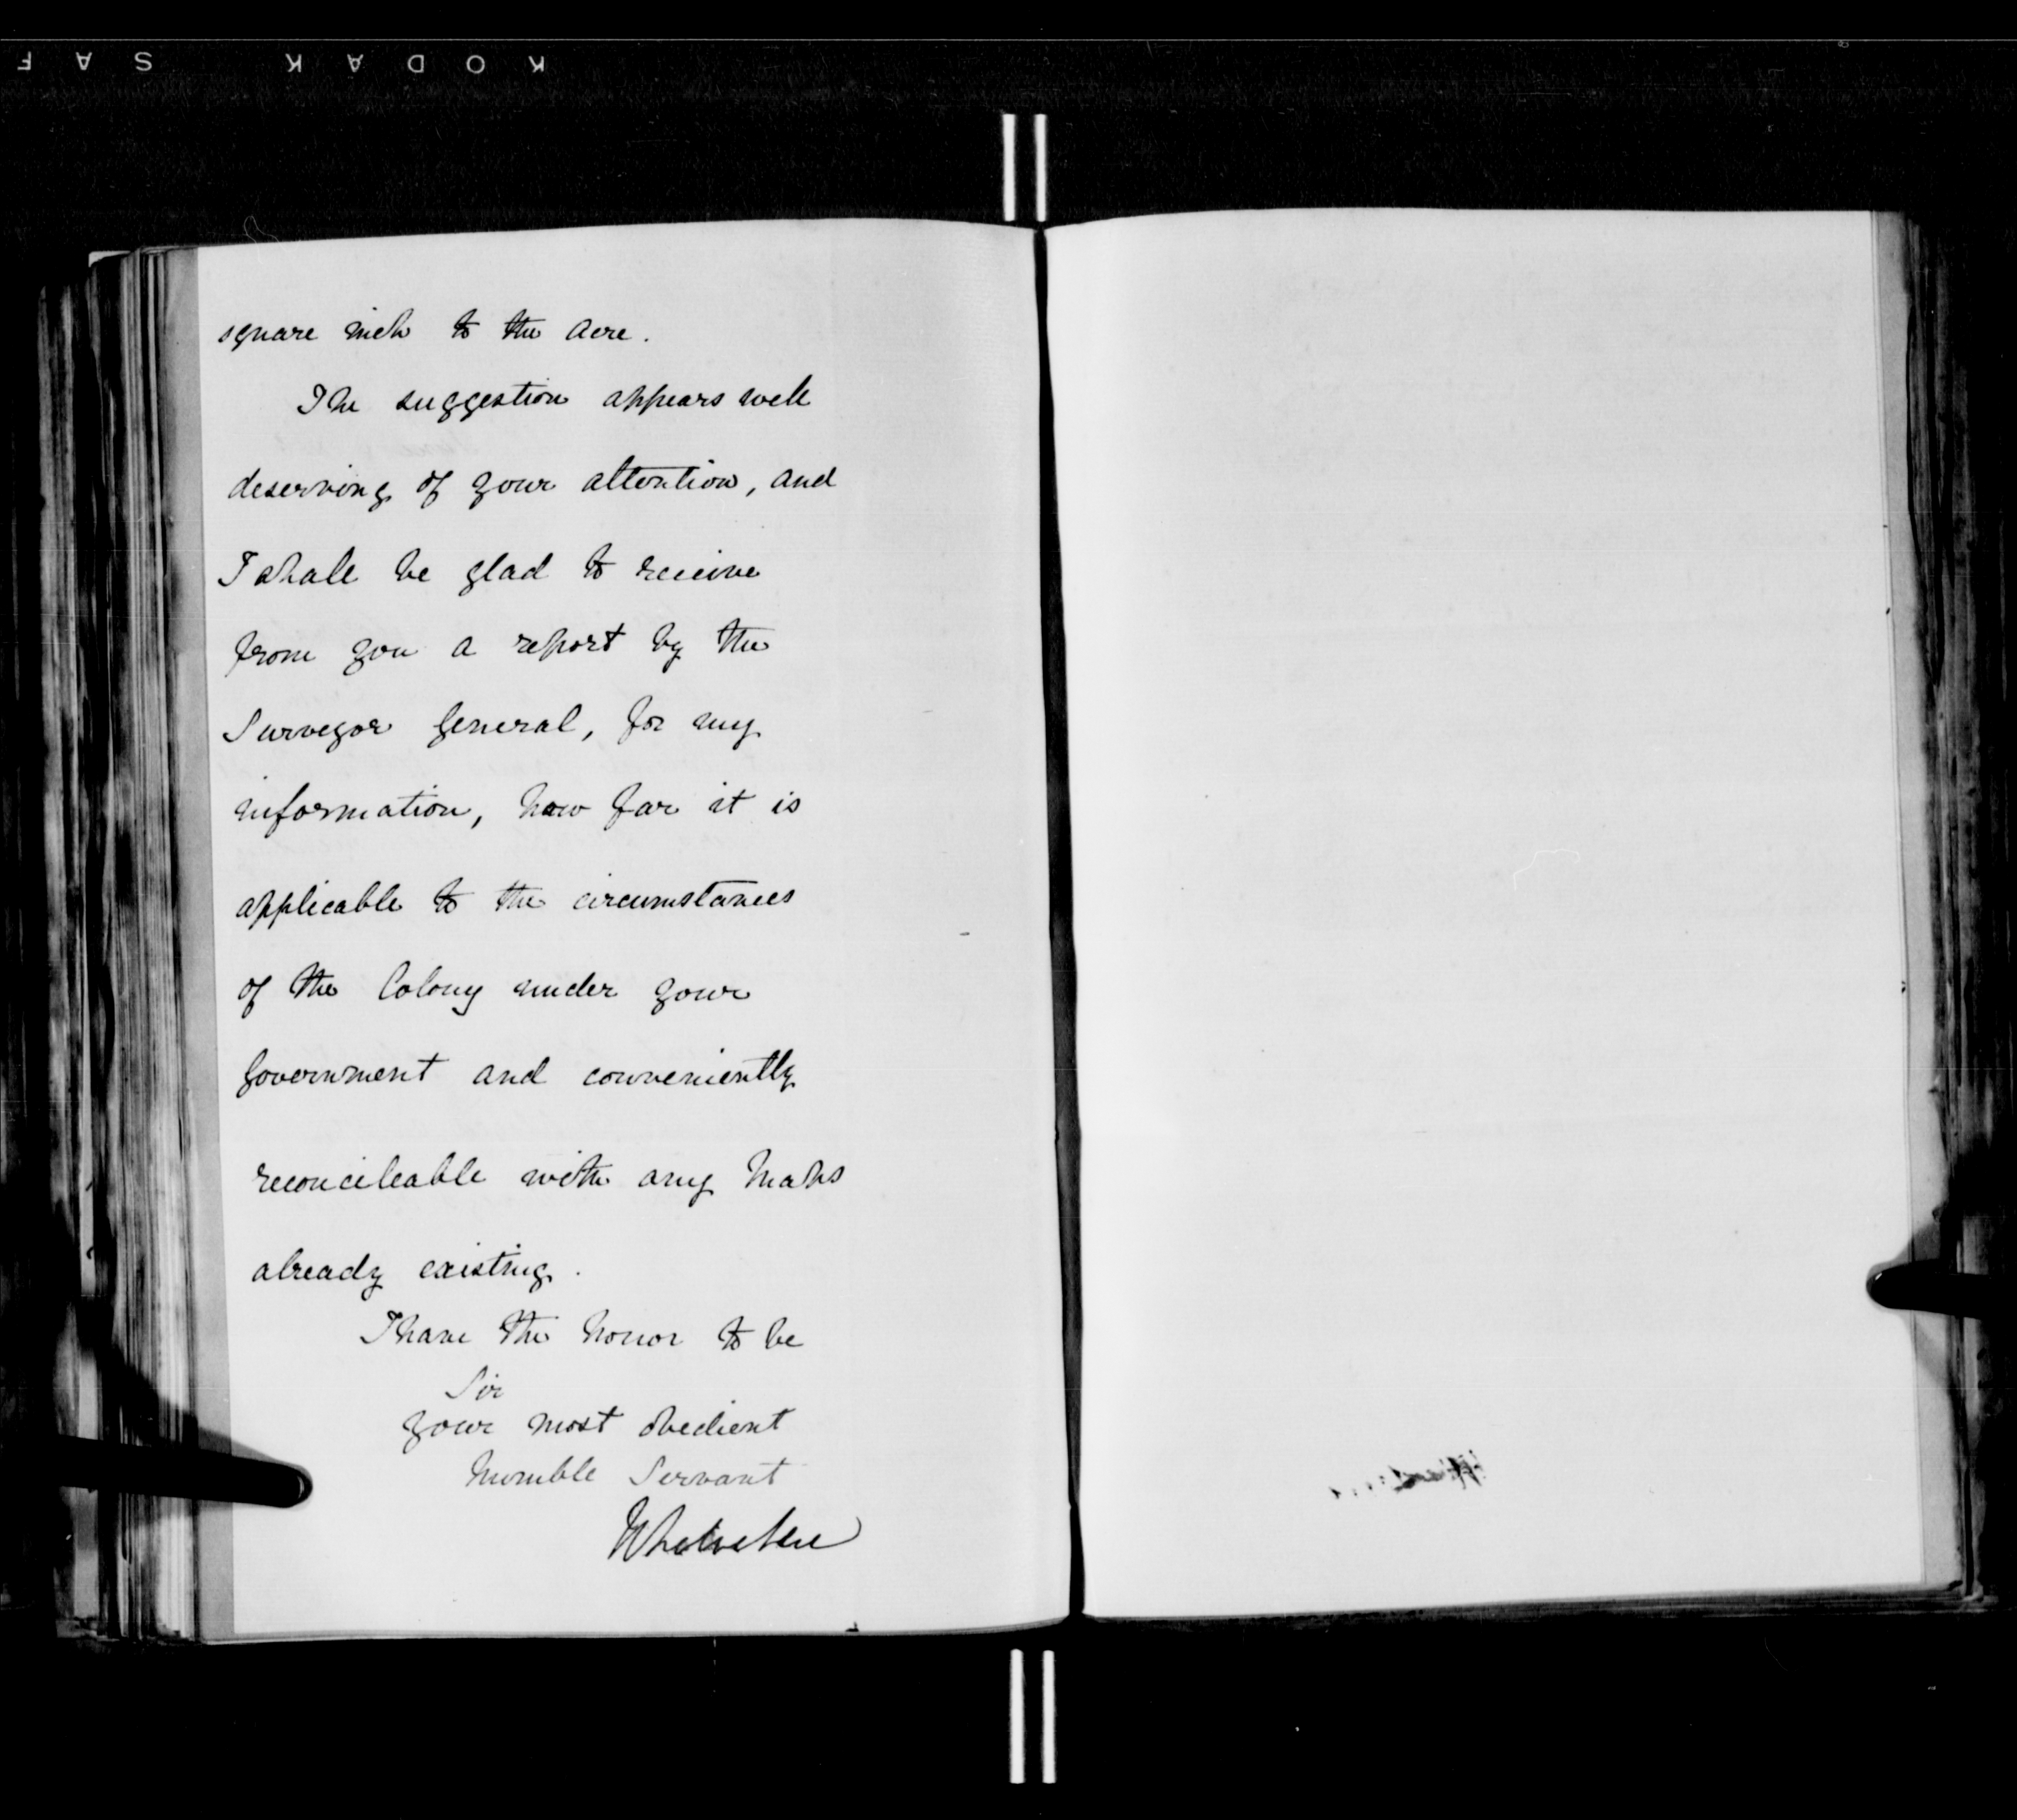 KODAK SAF
square inch to the acre.
The suggestion appears well
deserving of your attention, and
I shall be glad to receive
from you a report by the
Surveyor General, for my
information, how far it is
applicable to the circumstances
of the Colony under your
Government and conveniently
reconcileable with any Maps
already existing.
I have the honor to be
Sir
Your most obedient
humble Servant